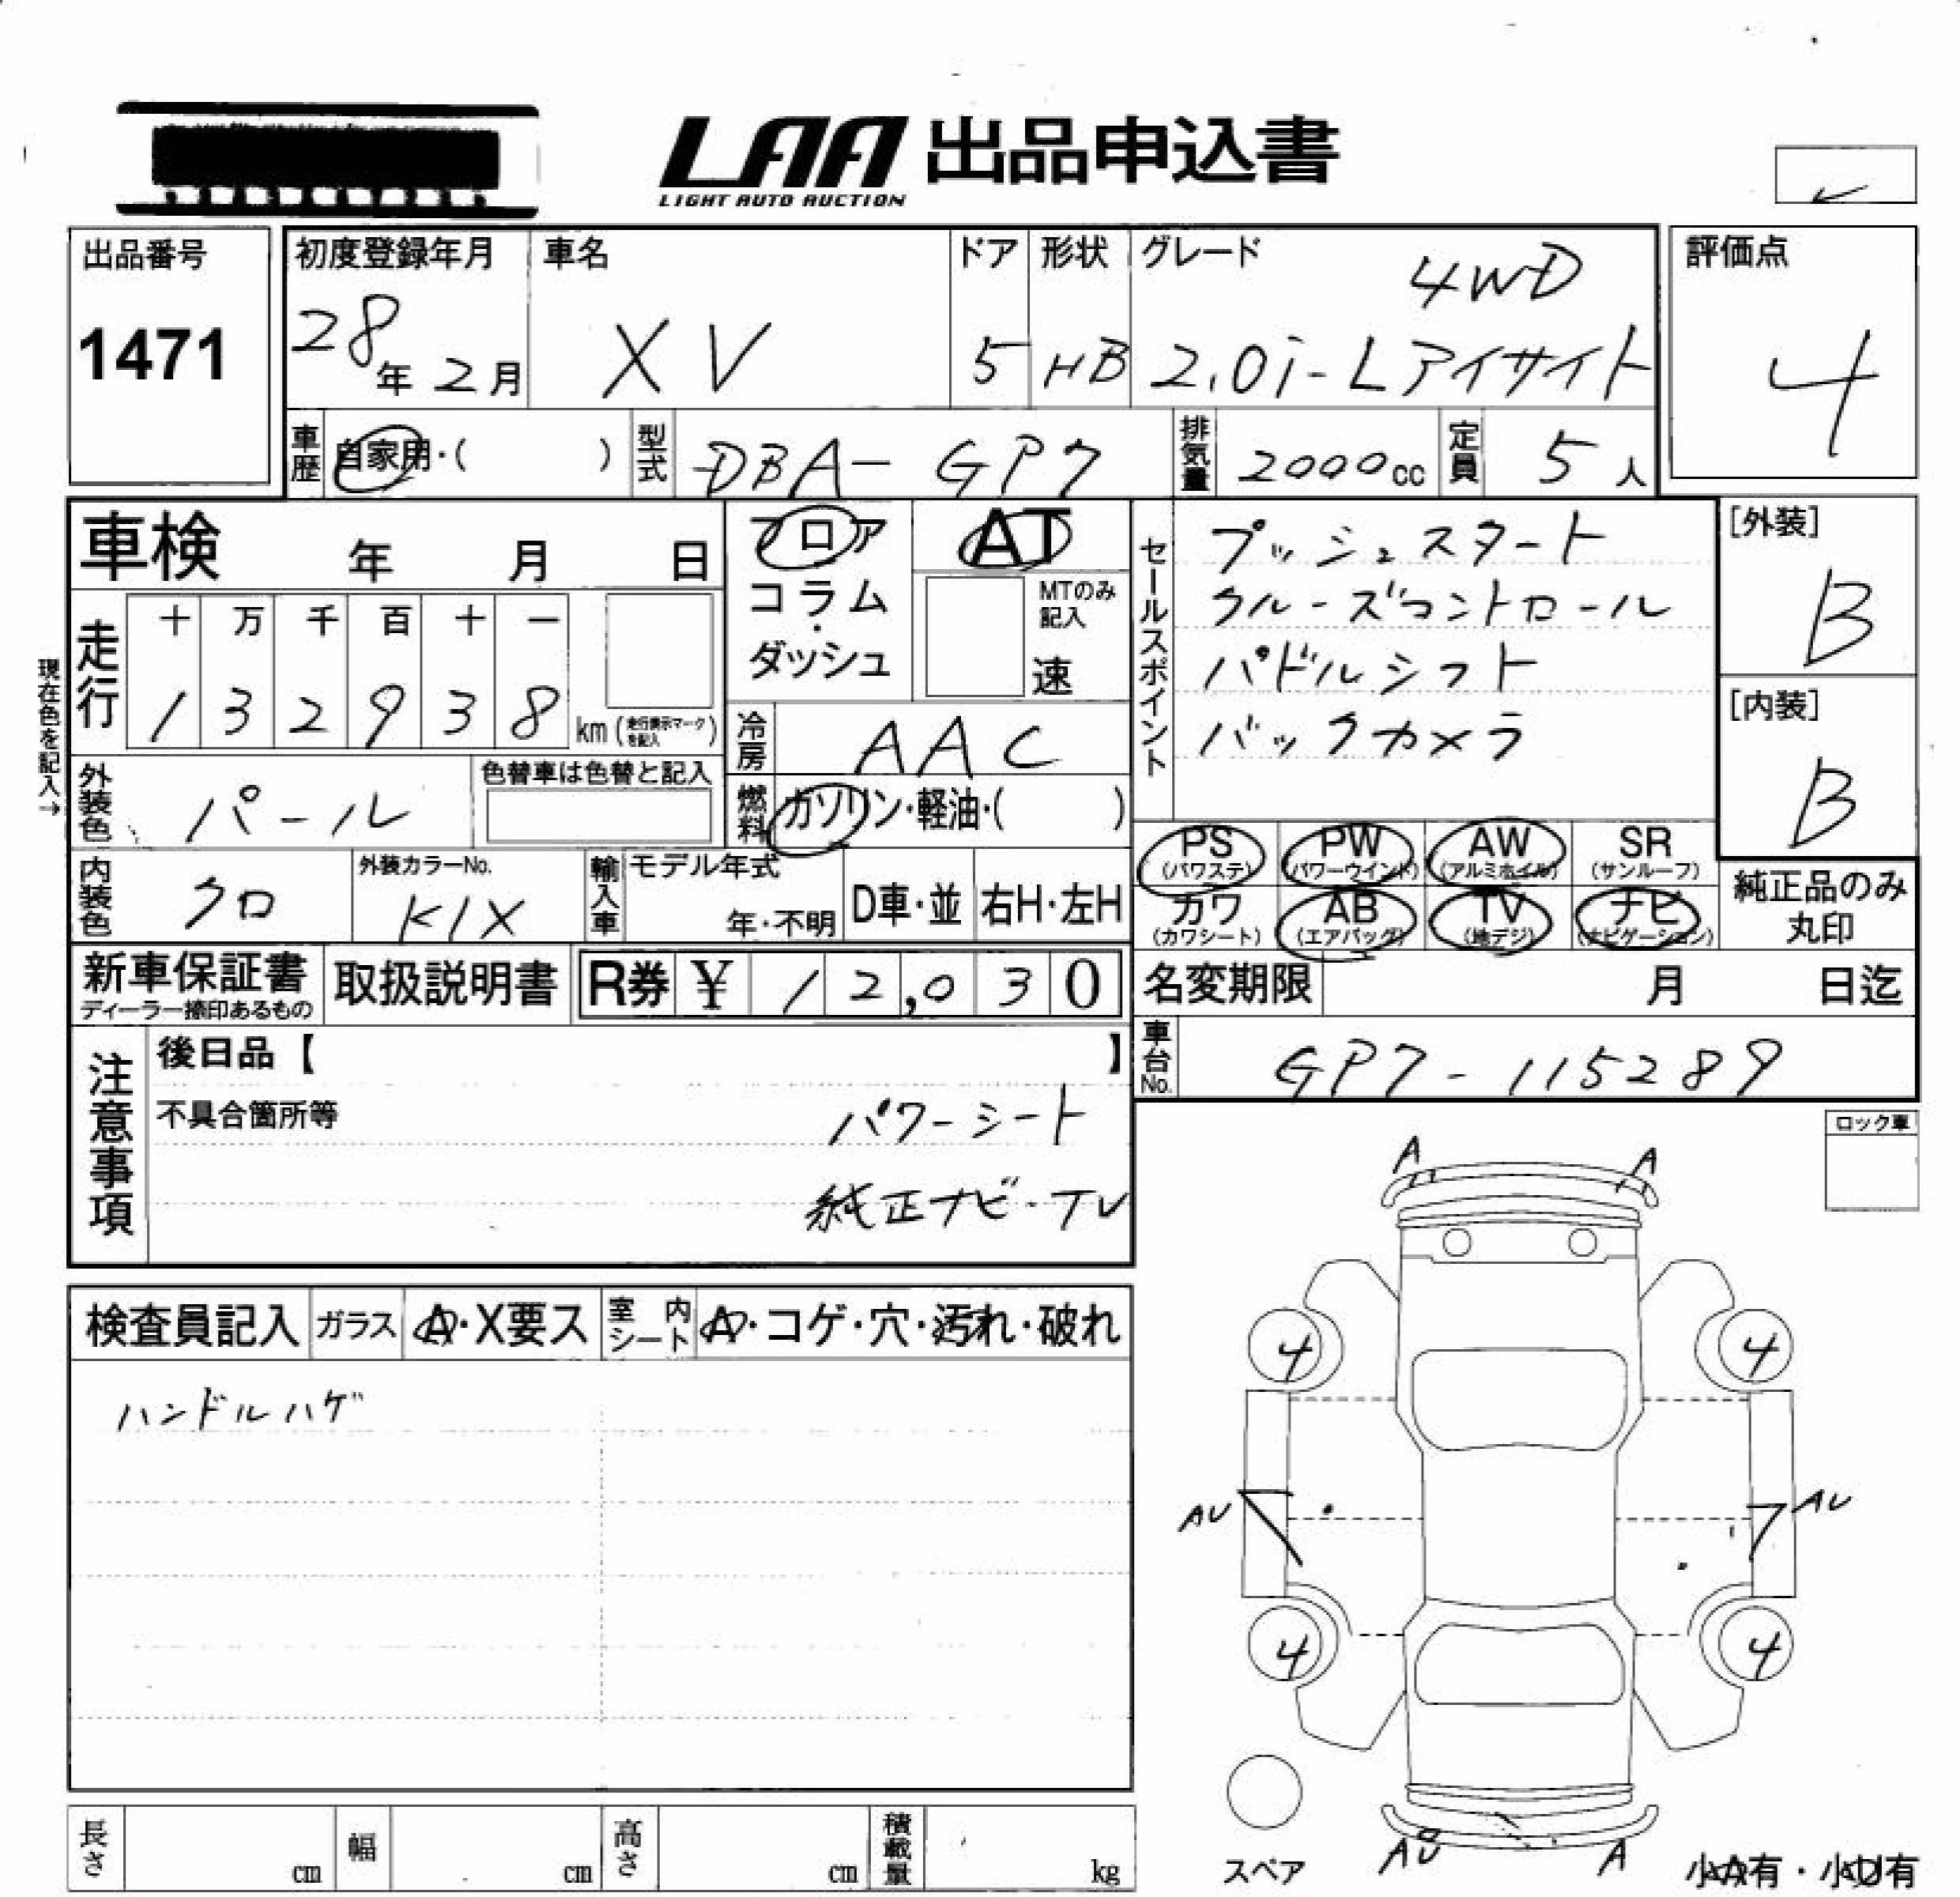 LAA 出品申込書
LIGHT AUTO AUCTION
出品番号
1471
初度登録年月
28年 2月
車名
XV
ドア
5
形状
HB
グレード
4WD
2.0i-Lアイサイト
評価点
4
車歴 自家用・( )
型式 DBA-GP7
排気量 2000cc
定員 5人
車検 年 月 日
フロア
コラム
・
ダッシュ
AT
MTのみ
記入
速
セールスポイント
プッシュスタート
クルーズコントロール
パドルシフト
バックカメラ
[外装]
B
[内装]
B
現在色を記入→
走行
十 万 千 百 十 一
1 3 2 9 3 8 km (走行表示マークを記入)
冷房 AAC
外装色 パール
色替車は色替と記入
燃料 ガソリン・軽油・( )
PS (パワステ) PW (パワーウインド) AW (アルミホイル) SR (サンルーフ)
カワ (カワシート) AB (エアバッグ) TV (地デジ) ナビ (ナビゲーション)
純正品のみ
丸印
内装色 クロ
外装カラーNo.
K1X
輸入車 モデル年式
年・不明 D車・並 右H・左H
新車保証書
ディーラー捺印あるもの
取扱説明書
R券 ¥ 12,030
名変期限 月 日迄
車台No. GP7-115289
注意事項
後日品【 】
不具合箇所等
パワーシート
純正ナビ・TV
ロック車
検査員記入 ガラス A・X要ス 室内シート A・コゲ・穴・汚れ・破れ
ハンドルハゲ
A A
4 4
AU AU
4 4
AU A
スペア
小A有・小U有
長さ cm 幅 cm 高さ cm 積載量 kg